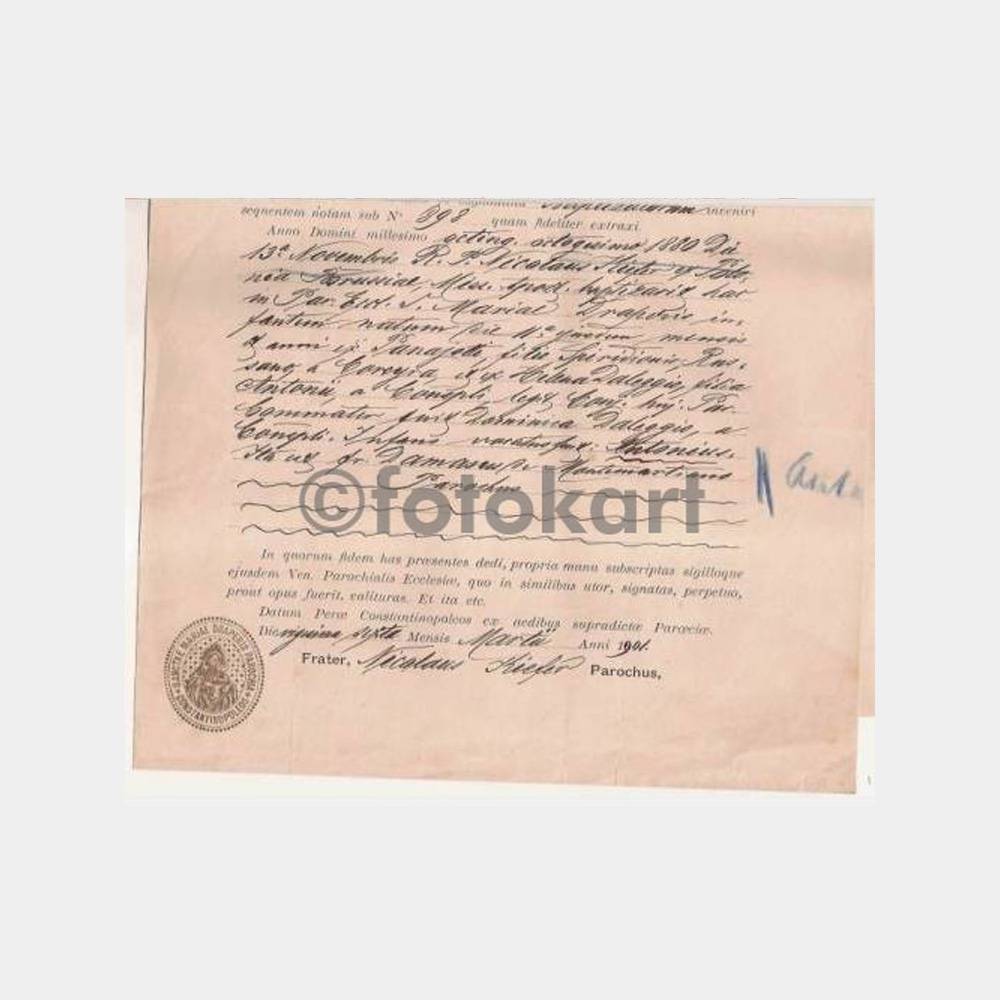 Baptizatorum inveniri
sequentem notam sub N° 898 quam fideliter extraxi.
Anno Domini millesimo octing. octogesimo 1880 Die
13ª Novembris R. P. Nicolaus Kiefer
Borussiae, Miss. Apost. baptizavit hac
in Par. Eccl. S. Mariae Draperis in-
fantem natum die 11ª ejusdem mensis
& anni ex Panajotti, filio Spiridionis,
a Corcyra et ex Helena Daleggio, filia
Antonii, a Constpli, Conj. huj. Par.
Commater fuit Dominica Daleggio, a
Constpli. Infans vocatus fuit: Antonius.
Ita est fr. Damasus de
Parochus
©fotokart
In quorum fidem has præsentes dedi, propria manu subscriptas sigilloque
ejusdem Ven. Parochialis Ecclesiæ, quo in similibus utor, signatas, perpetuo,
prout opus fuerit, valituras. Et ita etc.
Datum Peræ Constantinopoleos ex ædibus supradictæ Parœciæ.
Die sexta Mensis Martii Anni 1901.
Frater, Nicolaus Kiefer Parochus,
SANCTÆ MARIAE DRAPERIS PAROCHIA
CONSTANTINOPOLEOS